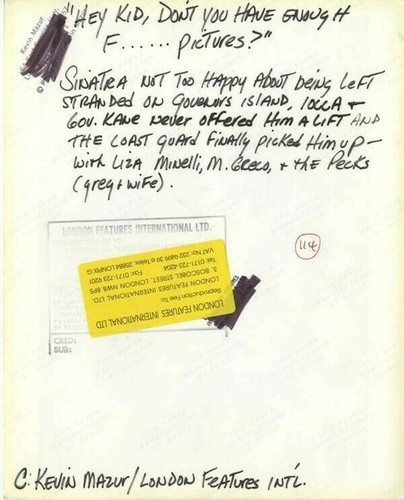 "HEY KID, DON'T YOU HAVE ENOUGH
F...... PICTURES?"
SINATRA NOT TOO HAPPY ABOUT BEING LEFT
STRANDED ON GOVERNORS ISLAND,
GOV. KANE NEVER OFFERED HIM A LIFT AND
THE COAST GUARD FINALLY PICKED HIM UP—
WITH LIZA MINELLI, M. GRECO, + THE PECKS
(GREG + WIFE).
Kevin Mazur
LONDON FEATURES INTERNATIONAL LTD.
114
Reproduction Fee To:
LONDON FEATURES INTERNATIONAL LTD
3, BOSCOBEL STREET, LONDON NW8 8PS
Tel: 0171-723 4204 Fax: 0171-723 9201
VAT No: 232 9499 39 Telex: 25884 LONPIX G
CRED:
SUB:
C: KEVIN MAZUR/LONDON FEATURES INT'L.